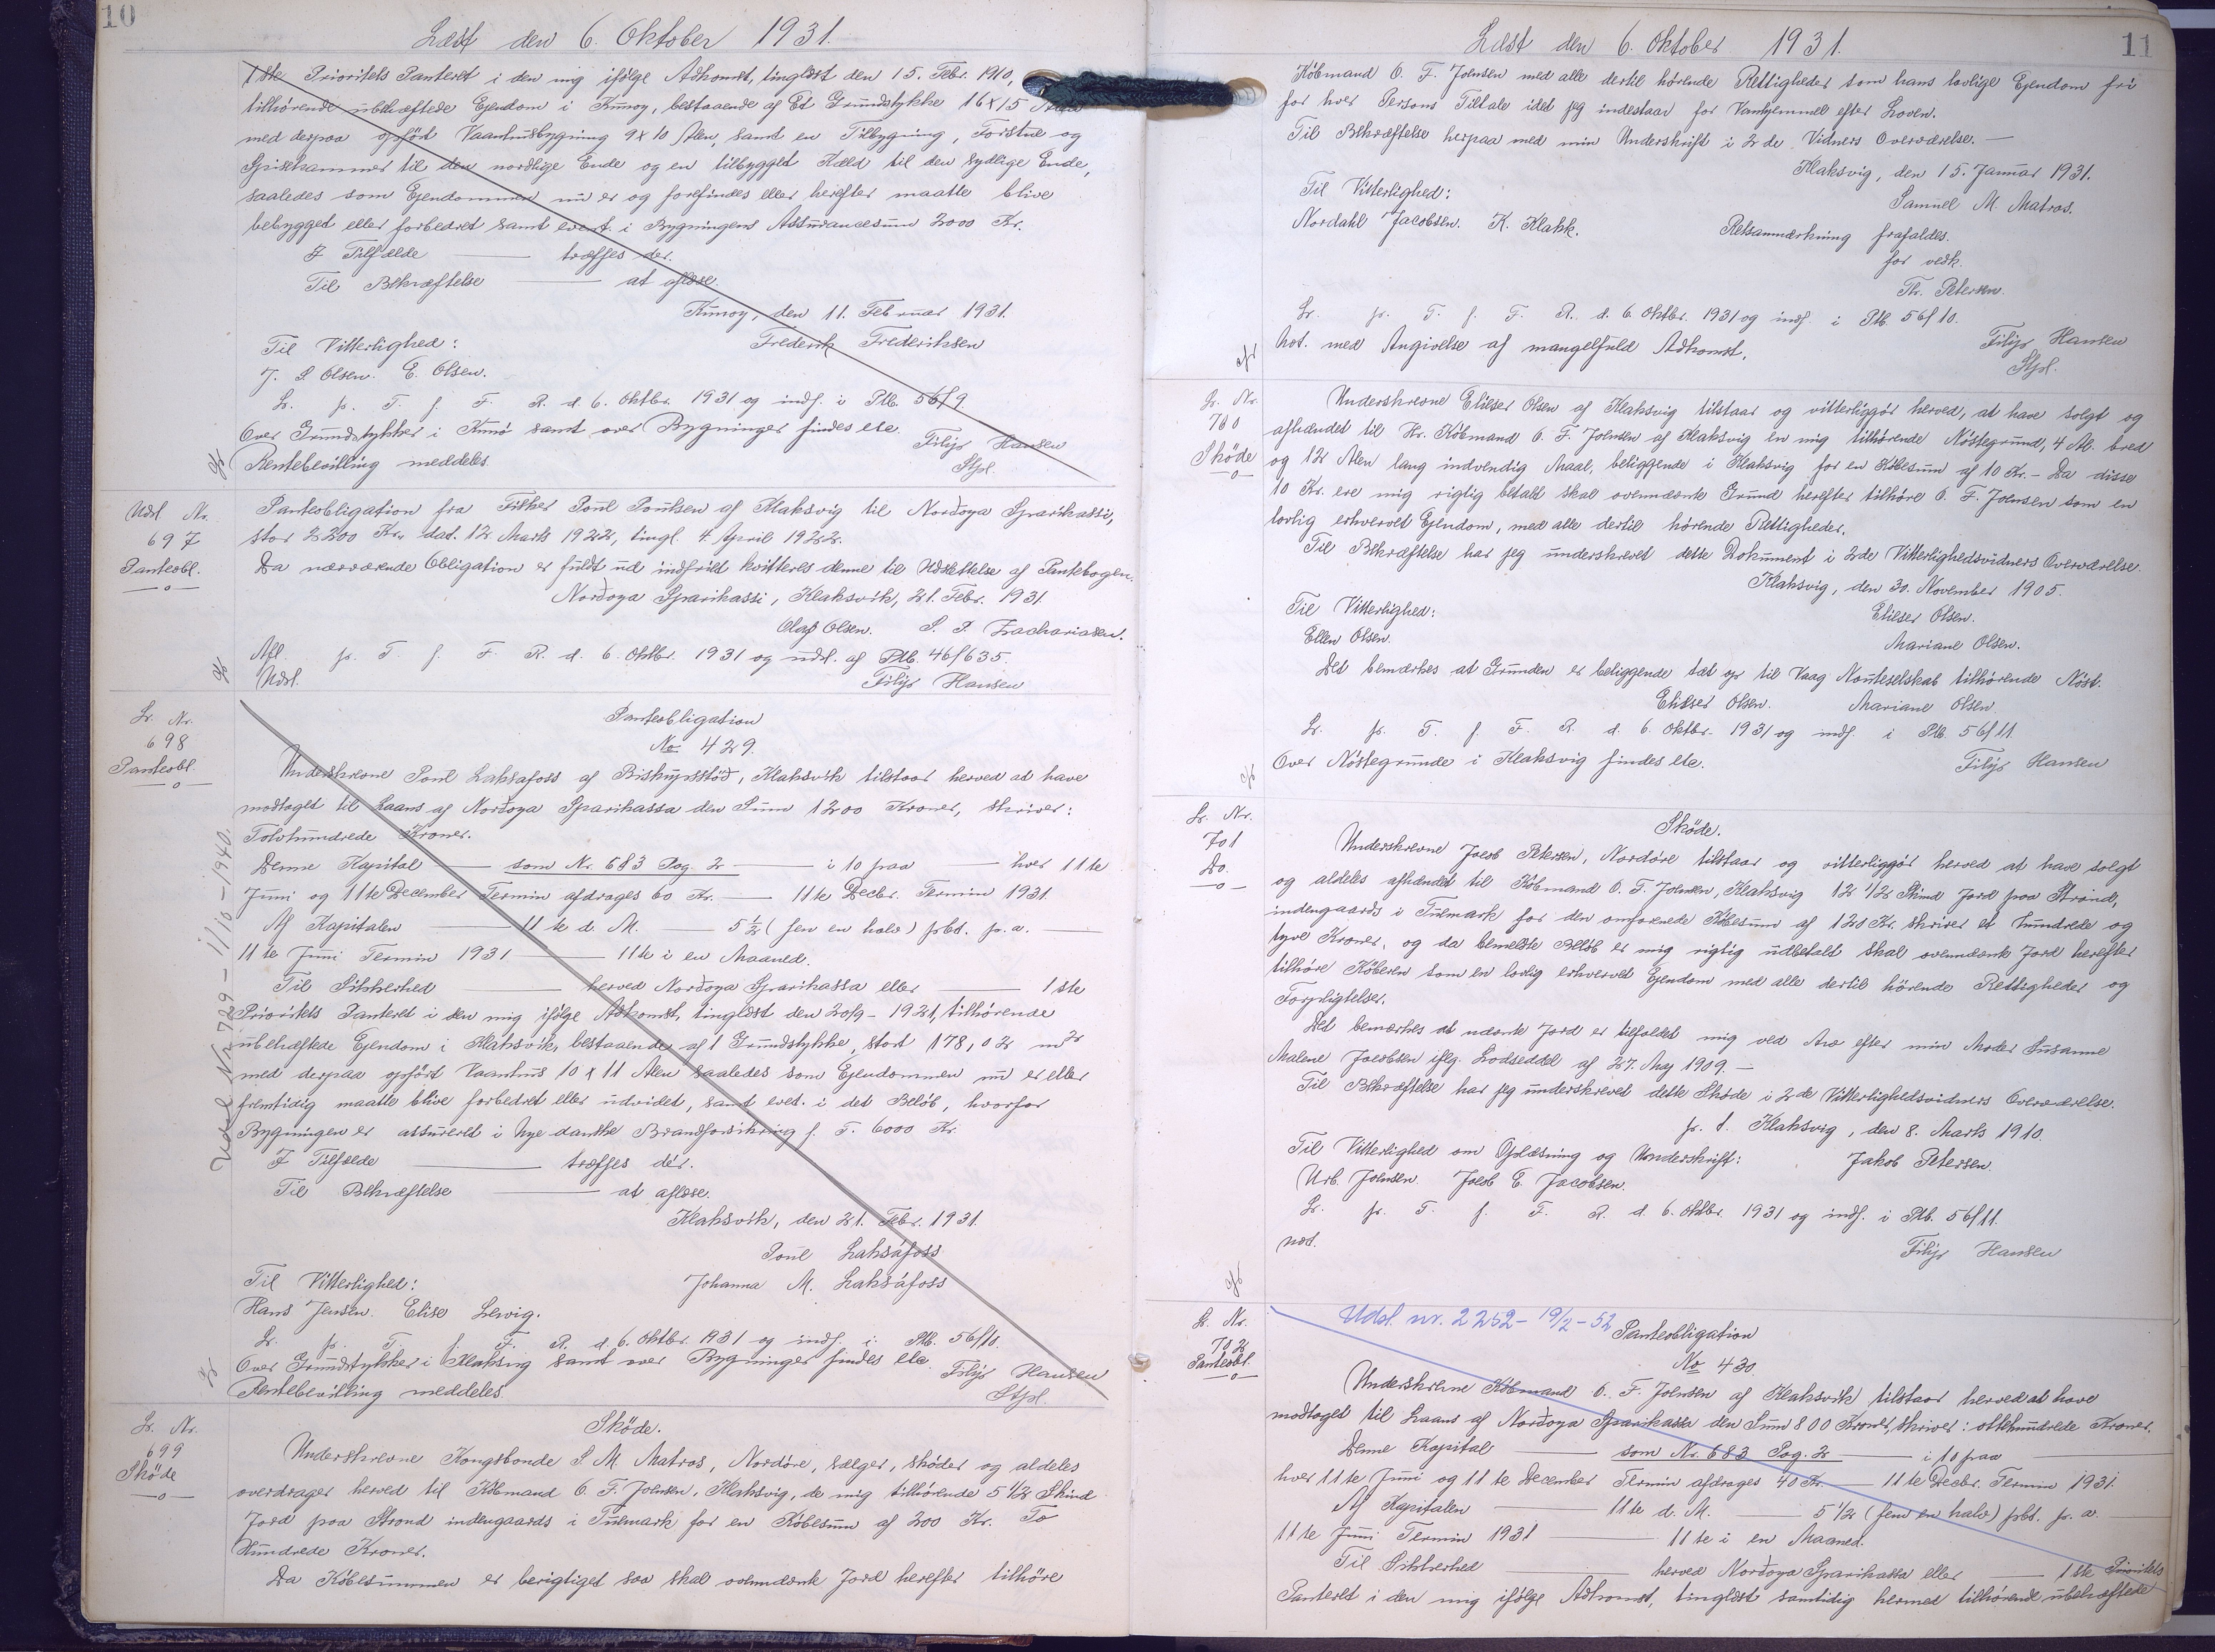 10
Læst den 6. Oktober 1931.
1ste Prioritets Panteret i den mig ifølge Adkomst, tinglæst den 15. Febr. 1910,
tilhørende ubehæftede Ejendom i Kunoy, bestaaende af Et Grundstykke 16 x 15 Alen
med derpaa opført Vaanhusbygning 9 x 10 Alen, samt en Tilbygning, Forstue og
Spisekammer til den nordlige Ende og en tilbygget Kæld til den sydlige Ende,
saaledes som Ejendommen nu er og forefindes eller herefter maatte blive
bebygget eller forbedret samt event. i Bygningens Assurancesum 2000 Kr.
I Tilfælde — træffes der.
Til Bekræftelse — at aflæse.
Kunoy, den 11. Februar 1931.
Til Vitterlighed: Frederik Frederiksen
J. S. Olsen. E. Olsen.
Lr. pr. T. f. F. R. d. 6. Oktbr. 1931 og indf. i Ptb. 56/9.
Over Grundstykker i Kunø samt over Bygninger findes ete.
Rentebevilling meddeles. Filip Hansen
Stfol.
Udsl Nr.
697
Panteobl.
—o—
Panteobligation fra Fisker Poul Poulsen af Klaksvig til Nordoya Sparikassi,
stor 2200 Kr., dat. 12 Marts 1922, tingl. 4 April 1922.
Da nærværende Obligation er fuldt ud indfriet kvitteres denne til Udslettelse af Pantebogen.
Nordoya Sparikassi, Klaksvík, 21. Febr. 1931.
Olaf Olsen. S. P. Zachariasen.
Afl. pr. T. f. F. R. d. 6. Oktbr. 1931 og udsl. af Ptb. 46/635.
Udsl. Filip Hansen
Lr. Nr.
698
Panteobl.
—o—
Udsl Nr 729 – 11/10 – 1940.
Panteobligation
No 429.
Underskrevne Poul Laksafoss af Biskupsstöð, Klaksvík tilstaar herved at have
modtaget til Laans af Nordoya Sparikassa den Sum 1200 Kroner, skriver:
Tolvhundrede Kroner.
Denne Kapital — som Nr. 683 Pag. 2 — i 10 paa — hver 11te
Juni og 11te December Termin afdrages 60 Kr. — 11te Decbr. Termin 1931.
Af Kapitalen — 11te d. M. — 5 1/2 (fem en halv) pCt. p. a. —
11te Juni Termin 1931 — 11te i en Maaned.
Til Sikkerhed — herved Nordoya Sparikassa eller — 1ste
Prioritets Panteret i den mig ifølge Adkomst, tinglæst den 20/9 - 1921, tilhørende
ubehæftede Ejendom i Klaksvík, bestaaende af 1 Grundstykke, stort 178,02 m2
med derpaa opført Vaanhus 10 x 11 Alen saaledes som Ejendommen nu er eller
fremtidig maatte blive forbedret eller udvidet, samt evet. i det Beløb, hvorfor
Bygningen er assureret i Nye danske Brandforsikring f. T. 6000 Kr.
I Tilfælde — træffes dér.
Til Bekræftelse — at aflæse.
Klaksvík, den 21. Febr. 1931.
Poul Laksáfoss
Til Vitterlighed: Johanna M. Laksáfoss
Hans Jensen. Elise Lervig.
Lr. pr. T. f. F. R. d. 6. Oktbr. 1931 og indf. i Ptb. 56/10.
Over Grundstykker i Klaksvig samt over Bygninger findes ete.
Rentebevilling meddeles. Filip Hansen
Stfol.
Lr. Nr.
699
Skøde
—o—
Skøde.
Underskrevne Kongsbonde S. M. Matros, Nordøre, sælger, skøder og aldeles
overdrager herved til Købmand O. F. Joensen, Klaksvig, de mig tilhørende 5 1/2 Skind
Jord paa Strond indengaards i Tulmark for en Købesum af 200 Kr. To
Hundrede Kroner.
Da Købesummen er berigtiget saa skal ovennævnte Jord herefter tilhøre
Læst den 6. Oktober 1931.
11
Købmand O. F. Joensen med alle dertil hørende Rettigheder som hans lovlige Ejendom fri
for hver Persons Tiltale idet jeg indestaar for Vanhjemmel efter Loven.
Til Bekræftelse herpaa med min Underskrift i 2de Vidners Overværelse. —
Klaksvig, den 15. Januar 1931.
Til Vitterlighed: Samuel M. Matros.
Nordahl Jacobsen. K. Klakk. Retsanmærkning frafaldes.
for vedk.
Th. Petersen.
Lr. pr. T. f. F. R. d. 6 Oktbr. 1931 og indf. i Ptb. 56/10.
Not. med Angivelse af mangelfuld Adkomst. Filip Hansen
Stfol.
Lr. Nr.
700
Skøde
—o—
Underskrevne Elieser Olsen af Klaksvig tilstaar og vitterliggør herved, at have solgt og
afhændet til Hr. Købmand O. F. Joensen af Klaksvig en mig tilhørende Nøstegrund, 4 Al. bred
og 12 Alen lang indvendig Maal, beliggende i Klaksvig for en Købesum af 10 Kr. – Da disse
10 Kr. ere mig rigtig betalt skal ovennævnte Grund herefter tilhøre O. F. Joensen som en
lovlig erhvervet Ejendom, med alle dertil hørende Rettigheder.
Til Bekræftelse har jeg underskrevet dette Dokument i 2de Vitterlighedsvidners Overværelse.
Klaksvig, den 30. November 1905.
Til Vitterlighed: Elieser Olsen.
Ellen Olsen. Mariane Olsen.
Det bemærkes at Grunden er beliggende tæt op til Vaag Nouteselskab tilhørende Nøst.
Elieser Olsen. Mariane Olsen.
Lr. pr. T. f. F. R. d. 6 Oktbr. 1931 og indf. i Ptb. 56/11.
Over Nøstegrunde i Klaksvig findes ete. Filip Hansen
Lr. Nr.
701
Do.
—o—
Skøde.
Underskrevne Jacob Petersen, Nordøre tilstaar og vitterliggør herved at have solgt
og aldeles afhændet til Købmand O. F. Joensen, Klaksvig 12 1/2 Skind Jord paa Strond,
indengaards i Tulmark for den omforenede Købesum af 120 Kr. skriver et Hundrede og
tyve Kroner, og da bemeldte Beløb er mig rigtig udbetalt skal ovennævnte Jord herefter
tilhøre Køberen som en lovlig erhvervet Ejendom med alle dertil hørende Rettigheder og
Forpligtelser.
Det bemærkes at nævnte Jord er tilfaldet mig ved Arv efter min Moder Susanne
Malene Jacobsen iflg. Lodseddel af 27. Maj 1909. —
Til Bekræftelse har jeg underskrevet dette Skøde i 2de Vitterlighedsvidners Overværelse.
p. t. Klaksvig, den 8. Marts 1910.
Til Vitterlighed om Oplæsning og Underskrift: Jakob Petersen.
Urb. Joensen. Jacob E. Jacobsen.
Lr. pr. T. f. F. R. d. 6. Oktbr. 1931 og indf. i Ptb. 56/11.
not. Filip Hansen
Lr. Nr.
702
Panteobl.
—o—
Udsl. nr. 2252 – 19/2 – 52
Panteobligation
No 430.
Underskrevne Købmand O. F. Joensen af Klaksvík tilstaar herved at have
modtaget til Laans af Nordoya Sparikassa den Sum 800 Kroner, skriver: ottehundrede Kroner.
Denne Kapital — som Nr. 683 Pag. 2 — i 10 paa —
hver 11te Juni og 11te December Termin afdrages 40 Kr. — 11te Decbr. Termin 1931.
Af Kapitalen — 11te d. M. — 5 1/2 (fem en halv) pCt. p. a. —
11te Juni Termin 1931 — 11te i en Maaned.
Til Sikkerhed — herved Nordoya Sparikassa eller — 1ste Prioritets
Panteret i den mig ifølge Adkomst, tinglæst samtidig hermed tilhørende ubehæftede